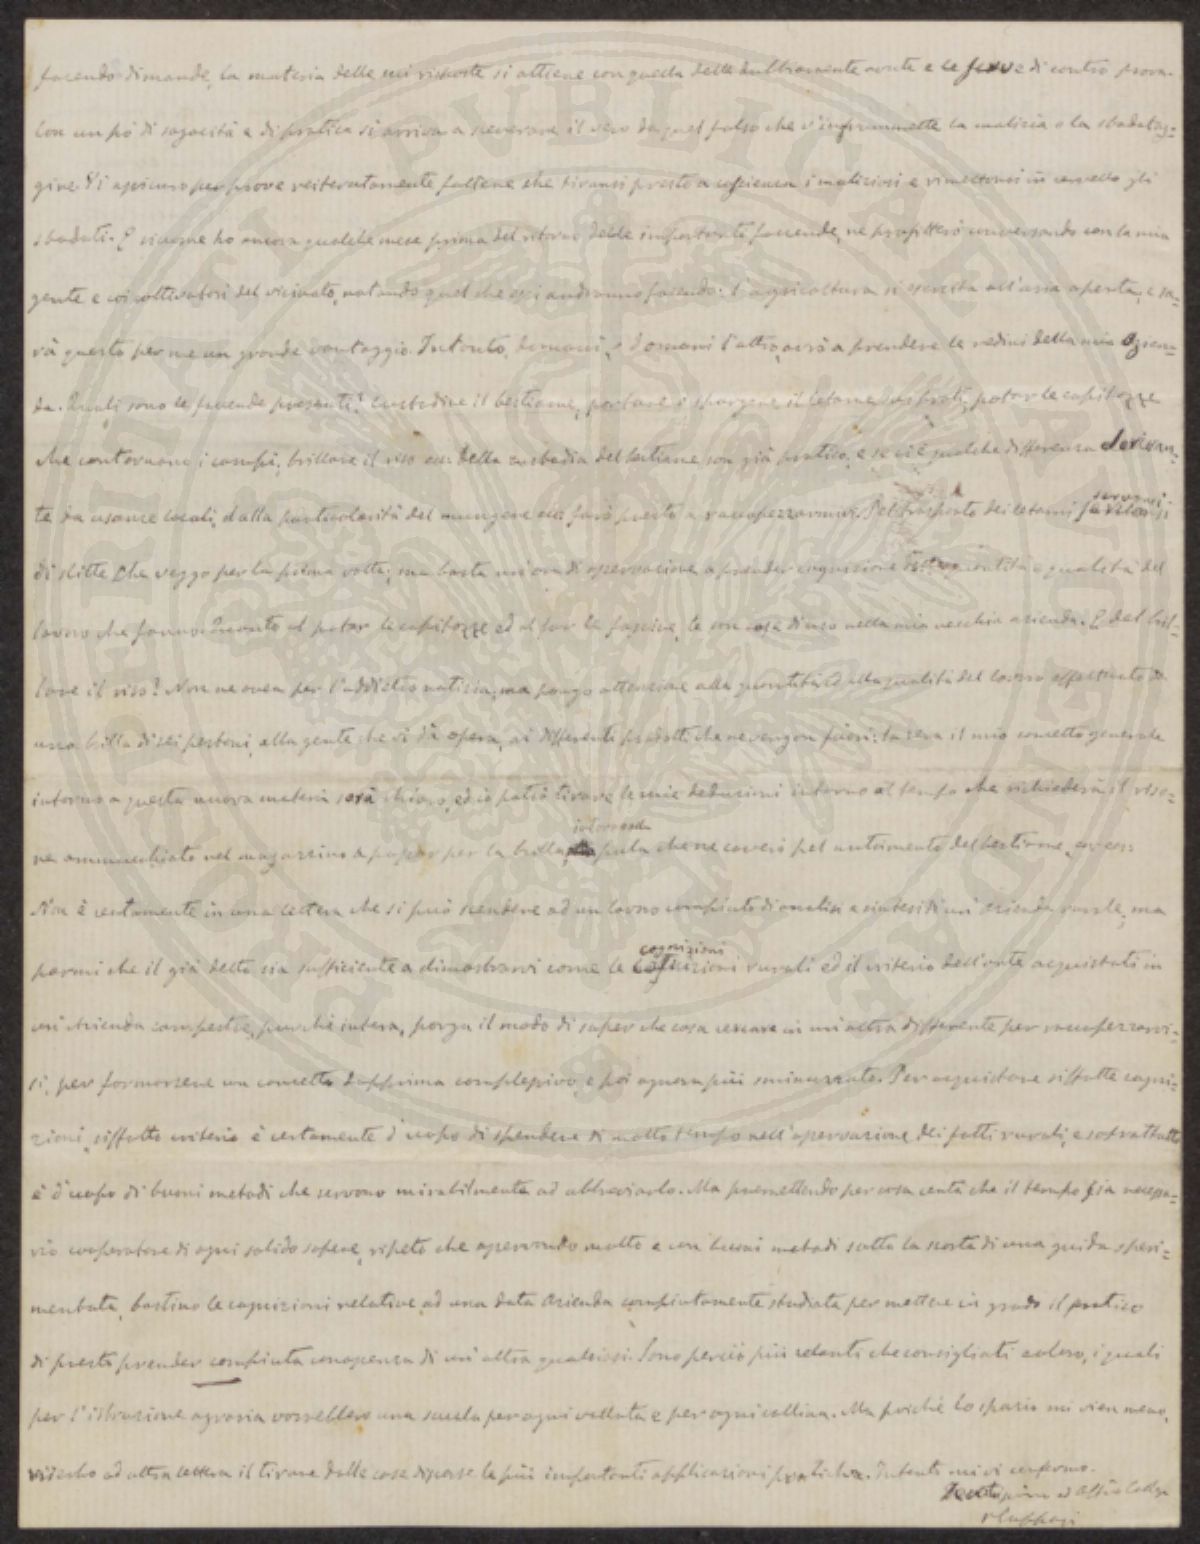 facendo dimande, la materia delle mi risposte si attiene con quella delle avute e le di contro prova.
Con un pò di sagacità e di pratica si arriva a sceverare il vero da quel falso che v'inframmette la malizia o la sbadatag=
gine. Vi assicuro per prove reiteratamente fattene che tiransi presto a coscienza i maliziosi e rimettonsi in cervello gli
sbadati. E siccome ho ancora qualche mese prima del ritorno delle importanti faccende, ne profitterò conversando con la mia
gente e coi coltivatori del vicinato, notando quel che essi andranno facendo: l'agricoltura si esercita all'aria aperta, e sa=
rà questo per me un grande vantaggio. Intanto, domani, o domani l'altro, avrò a prendere le redini della mia Azien=
da. Quali sono le faccende presenti? Custodire il bestiame, portare i spargere il letame sui prati, potar le capitozze
che contornano i campi, brillare il riso ecc. Della custodia del bestiame son già pratico, e se ci è qualche differenza derivan=
te da usanze locali, dalla particolarità del mungere ecc. farò presto a raccapezzarmivi. Pel trasporto dei letami servonsi
di slitte che veggo per la prima volta; ma basta un'ora di osservazione a prender cognizione della quantità e qualità del
lavoro che fanno. Quanto al potar le capitozze ed al far le fascine, le son cose di uso nella mia vecchia azienda. E del bril=
lare il riso? Non ne avea per l'addietro notizia, ma pongo attenzione alla quantità ed alla qualità del lavoro effettuato da
una brilla di sei pestoni, alla gente che vi dà opera, ai differenti prodotti che ne vengon fuori: la sera il mio concetto generale
intorno a questa nuova materia sarà chiaro, ed io potrò tirare le mie deduzioni intorno al tempo che richiederà il riso=
ne ammucchiato nel magazzino a passar per la brilla, pula che ne caverò pel nutrimento del bestiame, ecc. ecc.
Non è certamente in una lettera che si può scendere ad un lavoro compiuto di analisi e sintesi di un'azienda rurale; ma
parmi che il già detto sia sufficiente a dimostrarvi come le cognizioni rurali ed il criterio dell'arte acquistati in
un'Azienda campestre, purchè intera, porga il modo di saper che cosa cercare in un'altra differente per raccapezzarvi=
si, per formarsene un concetto dapprima complessivo e poi ognora più sminuzzato. Per acquistare siffatte cogni=
zioni, siffatto criterio è certamente d'uopo di spendere di molto tempo nell'osservazione dei fatti rurali, e soprattutto
è d'uopo di buoni metodi che servono mirabilmente ad abbreviarlo. Ma premettendo per cosa certa che il tempo sia necessa=
rio cooperatore di ogni solido sapere, ripeto che osservando molto e con buoni metodi sotto la scorta di una guida speri=
mentata, bastino le cognizioni relative ad una data Azienda compiutamente studiata per mettere in grado il pratico
di presto prender compiuta conoscenza di un'altra qualsiasi. Sono perciò più zelanti che consigliati coloro, i quali
per l'istruzione agraria vorrebbero una scuola per ogni vallata e per ogni collina. Ma poichè lo spazio mi vien meno,
riserbo ad altra lettera il tirare dalle cose discorse le più importanti applicazioni pratiche. Intanto mi vi confermo.
ed Affmo Collega